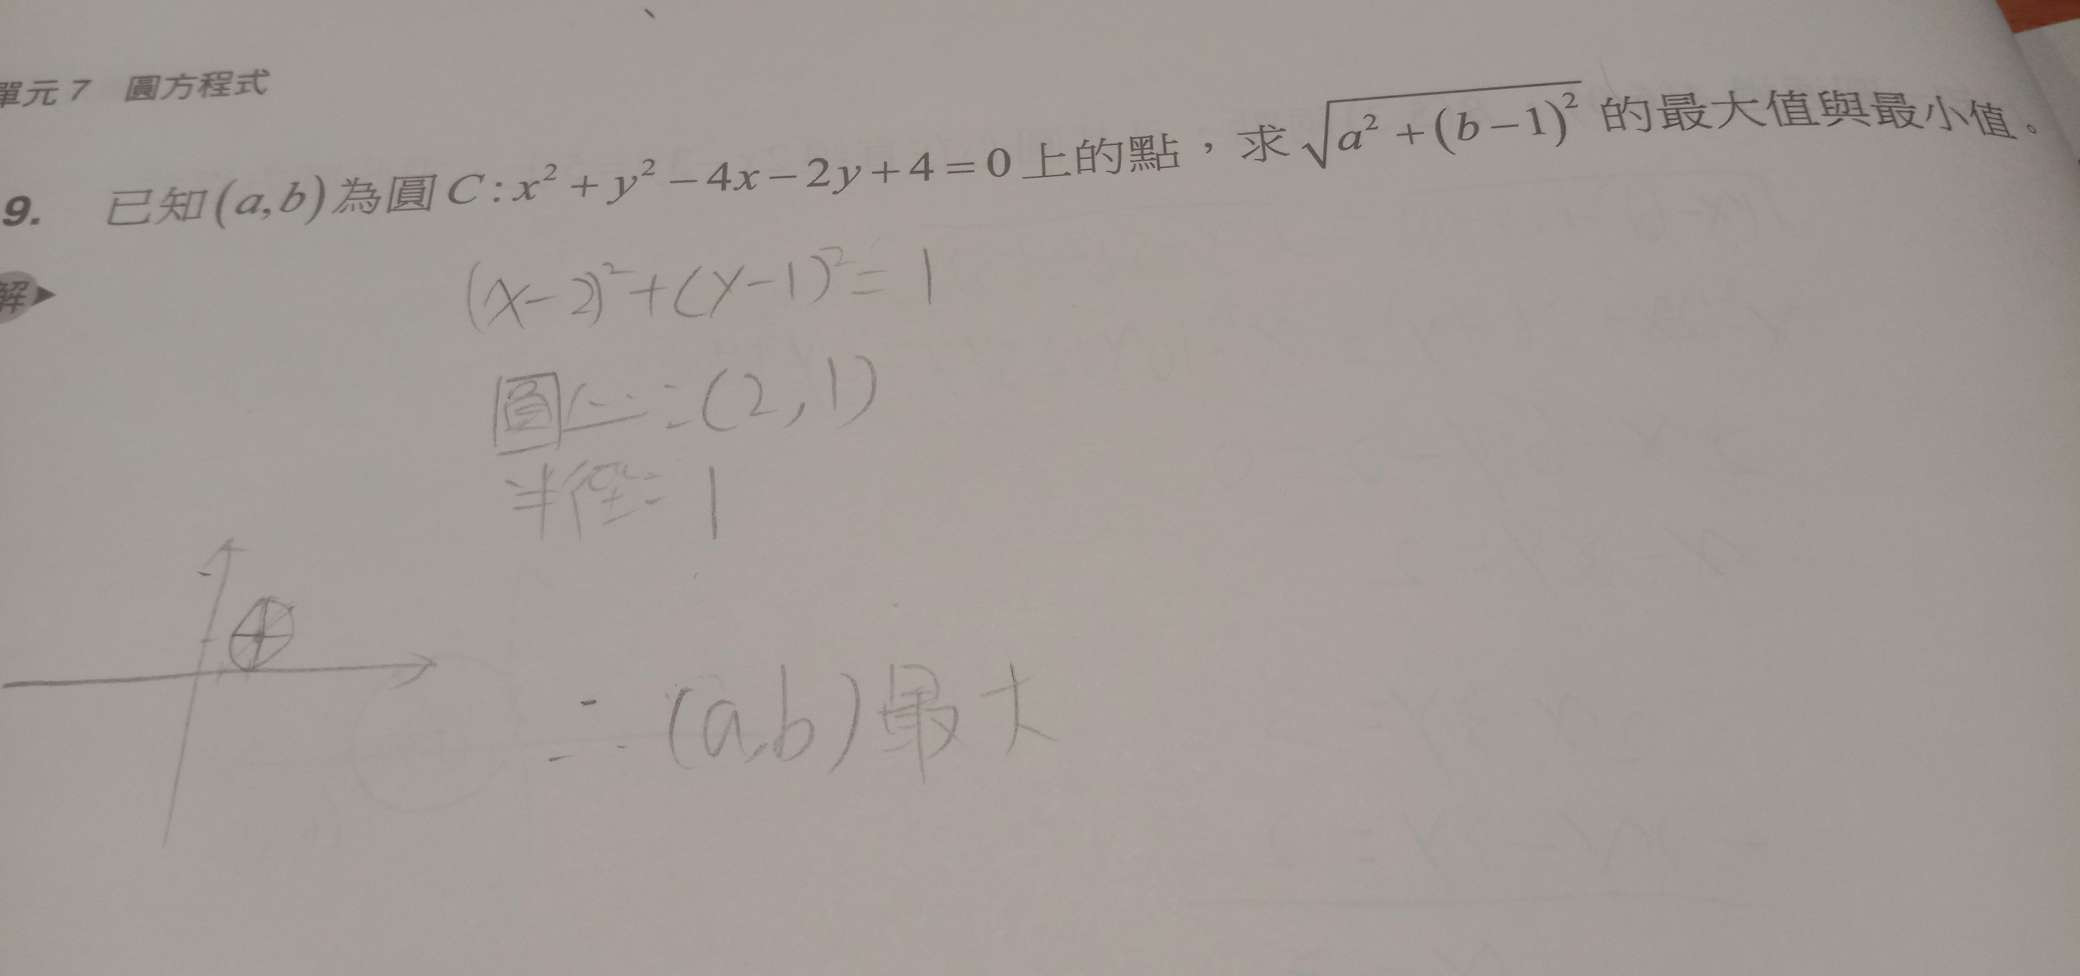 單元7 圓方程式
9. 已知(a,b)為圓C:x²+y²-4x-2y+4=0上的點，求√(a²+(b-1)²)的最大值與最小值。
解
(x-2)²+(y-1)²=1
圓心=(2,1)
半徑=1
∴(a,b)最大